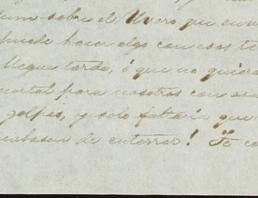 sobre el Uvero que en
puede hacer algo con esos te
llegue tarde, ó que no quiera
mortal para nosotros con se
golpes, y solo faltaría que
acabasen de enterrar! Te co